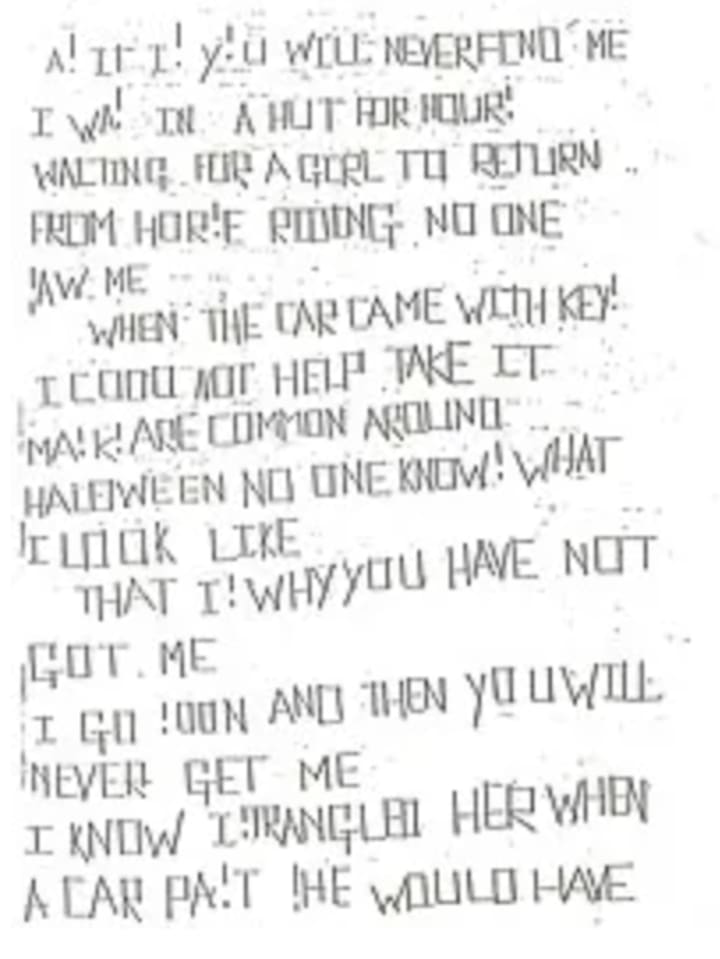 A! IT I! YOU WILL NEVER FIND ME
I WA! IN A HUT FOR HOUR!
WAITING FOR A GIRL TO RETURN
FROM HOR!E RIDING NO ONE
!AW ME
WHEN THE CAR CAME WITH KEY!
I COULD NOT HELP TAKE IT
MA!K! ARE COMMON AROUND
HALOWEEN NO ONE KNOW! WHAT
I LOOK LIKE
THAT I! WHY YOU HAVE NOT
GOT ME
I GO !OON AND THEN YOU WILL
NEVER GET ME
I KNOW I !TRANGLED HER WHEN
A CAR PA!T !HE WOULD HAVE